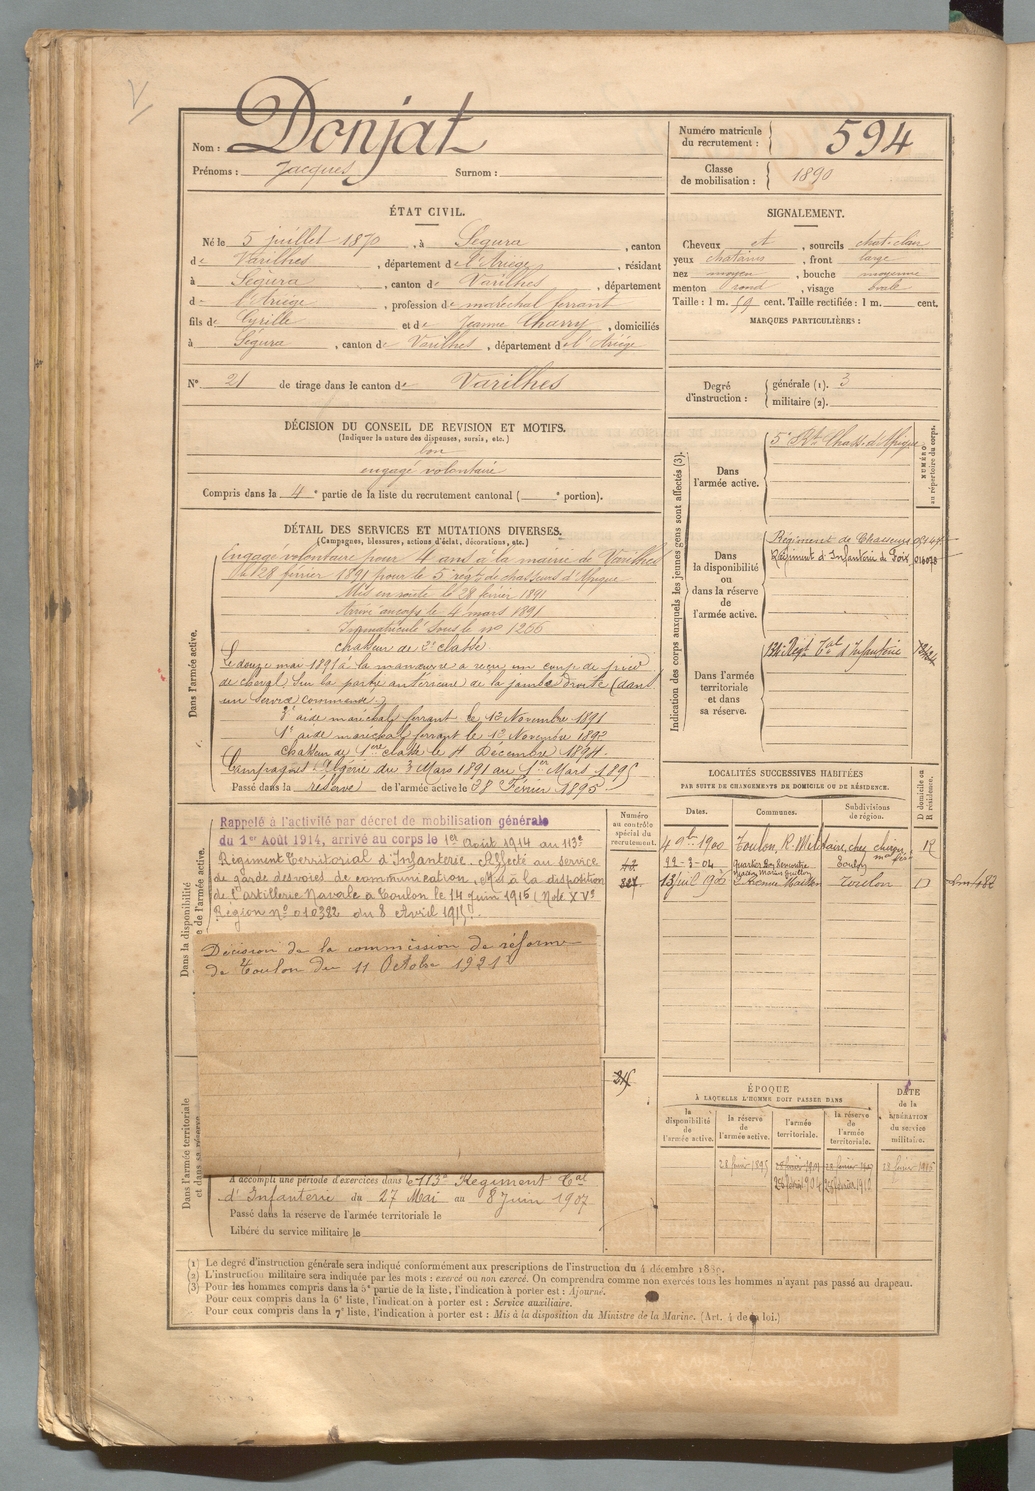 Nom : Donjat
Prénoms : Jacques Surnom :
Numéro matricule du recrutement : 594
Classe de mobilisation : 1890
ÉTAT CIVIL.
Né le 5 juillet 1870, à Ségura, canton
de Varilhes, département de l'Ariège, résidant
à Ségura, canton de Varilhes, département
d l'Ariège, profession de maréchal ferrant
fils de Cyrille et de Jeanne Charry, domiciliés
à Ségura, canton de Varilhes, département de l'Ariège
N° 21 de tirage dans le canton de Varilhes
SIGNALEMENT.
Cheveux et, sourcils chat-clair
yeux chatains, front large
nez moyen, bouche moyenne
menton rond, visage ovale
Taille : 1 m. 59 cent. Taille rectifiée : 1 m. cent.
MARQUES PARTICULIÈRES :
Degré d'instruction : générale (1). 3
militaire (2).
DÉCISION DU CONSEIL DE REVISION ET MOTIFS.
(Indiquer la nature des dispenses, sursis, etc.)
bon
engagé volontaire
Compris dans la 4e partie de la liste du recrutement cantonal ( e portion).
DÉTAIL DES SERVICES ET MUTATIONS DIVERSES.
(Campagnes, blessures, actions d'éclat, décorations, etc.)
Dans l'armée active.
Engagé volontaire pour 4 ans à la mairie de Varilhes
le 28 février 1891 pour le 5e régt de chasseurs d'Afrique
Mis en route le 28 février 1891
Arrivé au corps le 4 mars 1891
Immatriculé sous le no 1266
chasseur de 2e classe
Le douze mai 1891 à la manœuvre a reçu un coup de pied
de cheval sur la partie antérieure de la jambe droite (dans
un service commandé)
2e aide maréchal ferrant le 13 Novembre 1891
1er aide maréchal ferrant le 12 Novembre 1892
chasseur de 1ère classe le 4 Décembre 1894.
Campagnes : Algérie du 3 Mars 1891 au 1er Mars 1895
Passé dans la réserve de l'armée active le 28 Février 1895
Indication des corps auxquels les jeunes gens sont affectés (3).
NUMÉRO au répertoire du corps.
Dans l'armée active.
5e Rt Chass. d'Afrique
Dans la disponibilité ou dans la réserve de l'armée active.
Régiment de Chasseurs
Régiment d'Infanterie de Foix 016078
Dans l'armée territoriale et dans sa réserve.
Régt Tal d'Infanterie
LOCALITÉS SUCCESSIVES HABITÉES
PAR SUITE DE CHANGEMENTS DE DOMICILE OU DE RÉSIDENCE.
Dates. Communes. Subdivisions de région. D domicile ou R résidence.
4 9bre 1900 Toulon, R. Militaire, chez R
22-3-04 Toulon
13 juil 1906 Toulon D
Dans la disponibilité
e de l'armée active.
Numéro au contrôle spécial du recrutement.
Rappelé à l'activité par décret de mobilisation générale
du 1er Août 1914, arrivé au corps le 1er Août 1914 au 113e
Régiment Territorial d'Infanterie. Affecté au service
de garde des voies de communication. Mis à la disposition
de l'artillerie Navale à Toulon le 14 Juin 1915 (Note XVe
Région no 010382 du 8 Avril 1915).
Décision de la commission de réforme
de Toulon du 11 Octobre 1921
Dans l'armée territoriale
et dans sa réserve
A accompli une période d'exercices dans le 113e Régiment Tal
d'Infanterie du 27 Mai au 8 Juin 1907
Passé dans la réserve de l'armée territoriale le
Libéré du service militaire le
ÉPOQUE
A LAQUELLE L'HOMME DOIT PASSER DANS
la disponibilité de l'armée active. la réserve de l'armée active. l'armée territoriale. la réserve de l'armée territoriale.
DATE de la LIBÉRATION du service militaire.
28 février 1895
(1) Le degré d'instruction générale sera indiqué conformément aux prescriptions de l'instruction du 4 décembre 1889.
(2) L'instruction militaire sera indiquée par les mots : exercé ou non exercé. On comprendra comme non exercés tous les hommes n'ayant pas passé au drapeau.
(3) Pour les hommes compris dans la 5e partie de la liste, l'indication à porter est : Ajourné.
Pour ceux compris dans la 6e liste, l'indication à porter est : Service auxiliaire.
Pour ceux compris dans la 7e liste, l'indication à porter est : Mis à la disposition du Ministre de la Marine. (Art. 4 de la loi.)